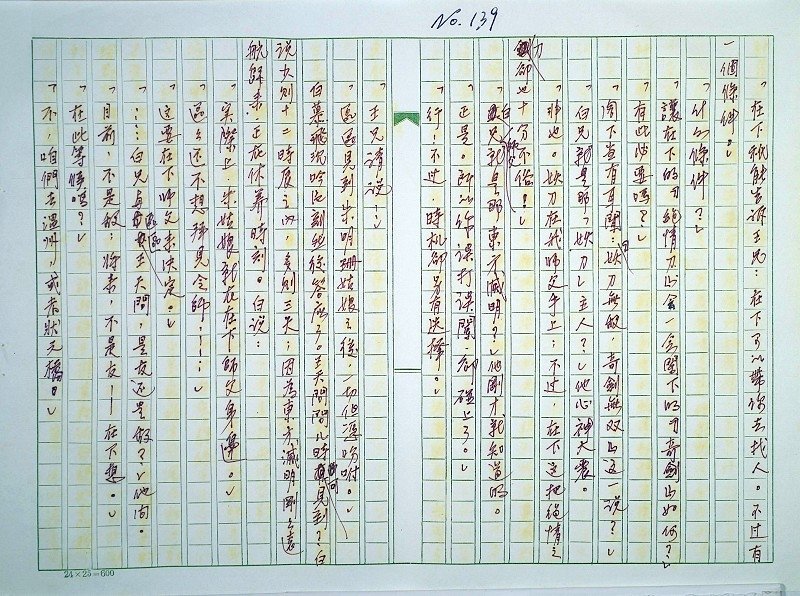 No. 139
「在下祇能告訴王兄：在下可以帶你去找人。不过有
一個條件。」
「什么條件？」
「讓在下的『絕情刀』会一会閣下的『奇劍』如何？」
「有此必要嗎？」
「閣下豈有耳聞：『妖刀無敵，奇劍無双』這一說？」
「白兄就是那『妖刀』主人？」他心神大震。
「神也。妖刀在我師父手上；不过，在下這把絕情之
刀卻也十分不俗！」
「白兄就是那東方滅明？」他剛才就知道的。
「正是。所以你誤打誤闖，卻碰上了。」
「行！不过，時机卻另有选擇。」
「王兄請說：」
「區區見到柴明珊姑娘之後，一切但憑吩咐。」
白慕飛沉吟片刻然後答應了。王天問問几時可見到？白
說少則十二時辰之內，多則三天；因為東方滅明剛剛遠
航歸来，正在休養時刻。白說：
「实際上，柴姑娘就在在下師父身邊。」
「區區还不想拜見令師！……」
「這要在下師父来決定。」
「……白兄与區區王天問，是友还是敵？」他問。
「目前，不是敵；將来，不是友，——在下想。」
「在此等候嗎？」
「不，咱們去溫州，或者狀元橋。」
24×25=600